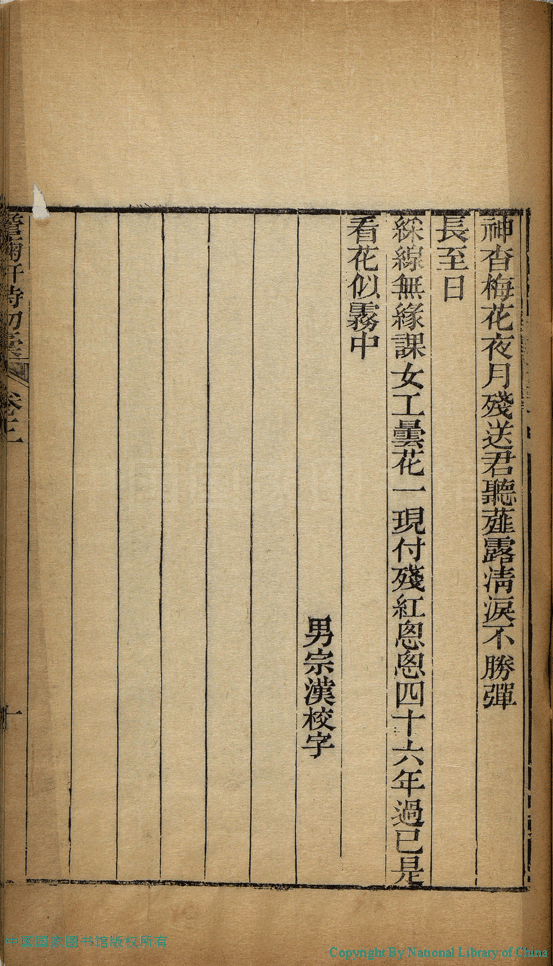 神杳梅花夜月殘送君聽薤露凊淚不勝彈
長至日
綵線無緣課女工曇花一現付殘紅悤悤四十六年過已是
看花似霧中
男宗漢校字
詩初
卷三
十
中国国家图书馆版权所有
Copyright By National Library of China